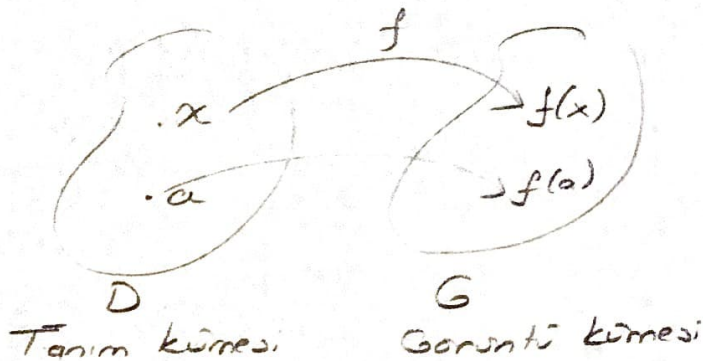 f
.x f(x)
.a f(a)
D G
Tanım kümesi Görüntü kümesi